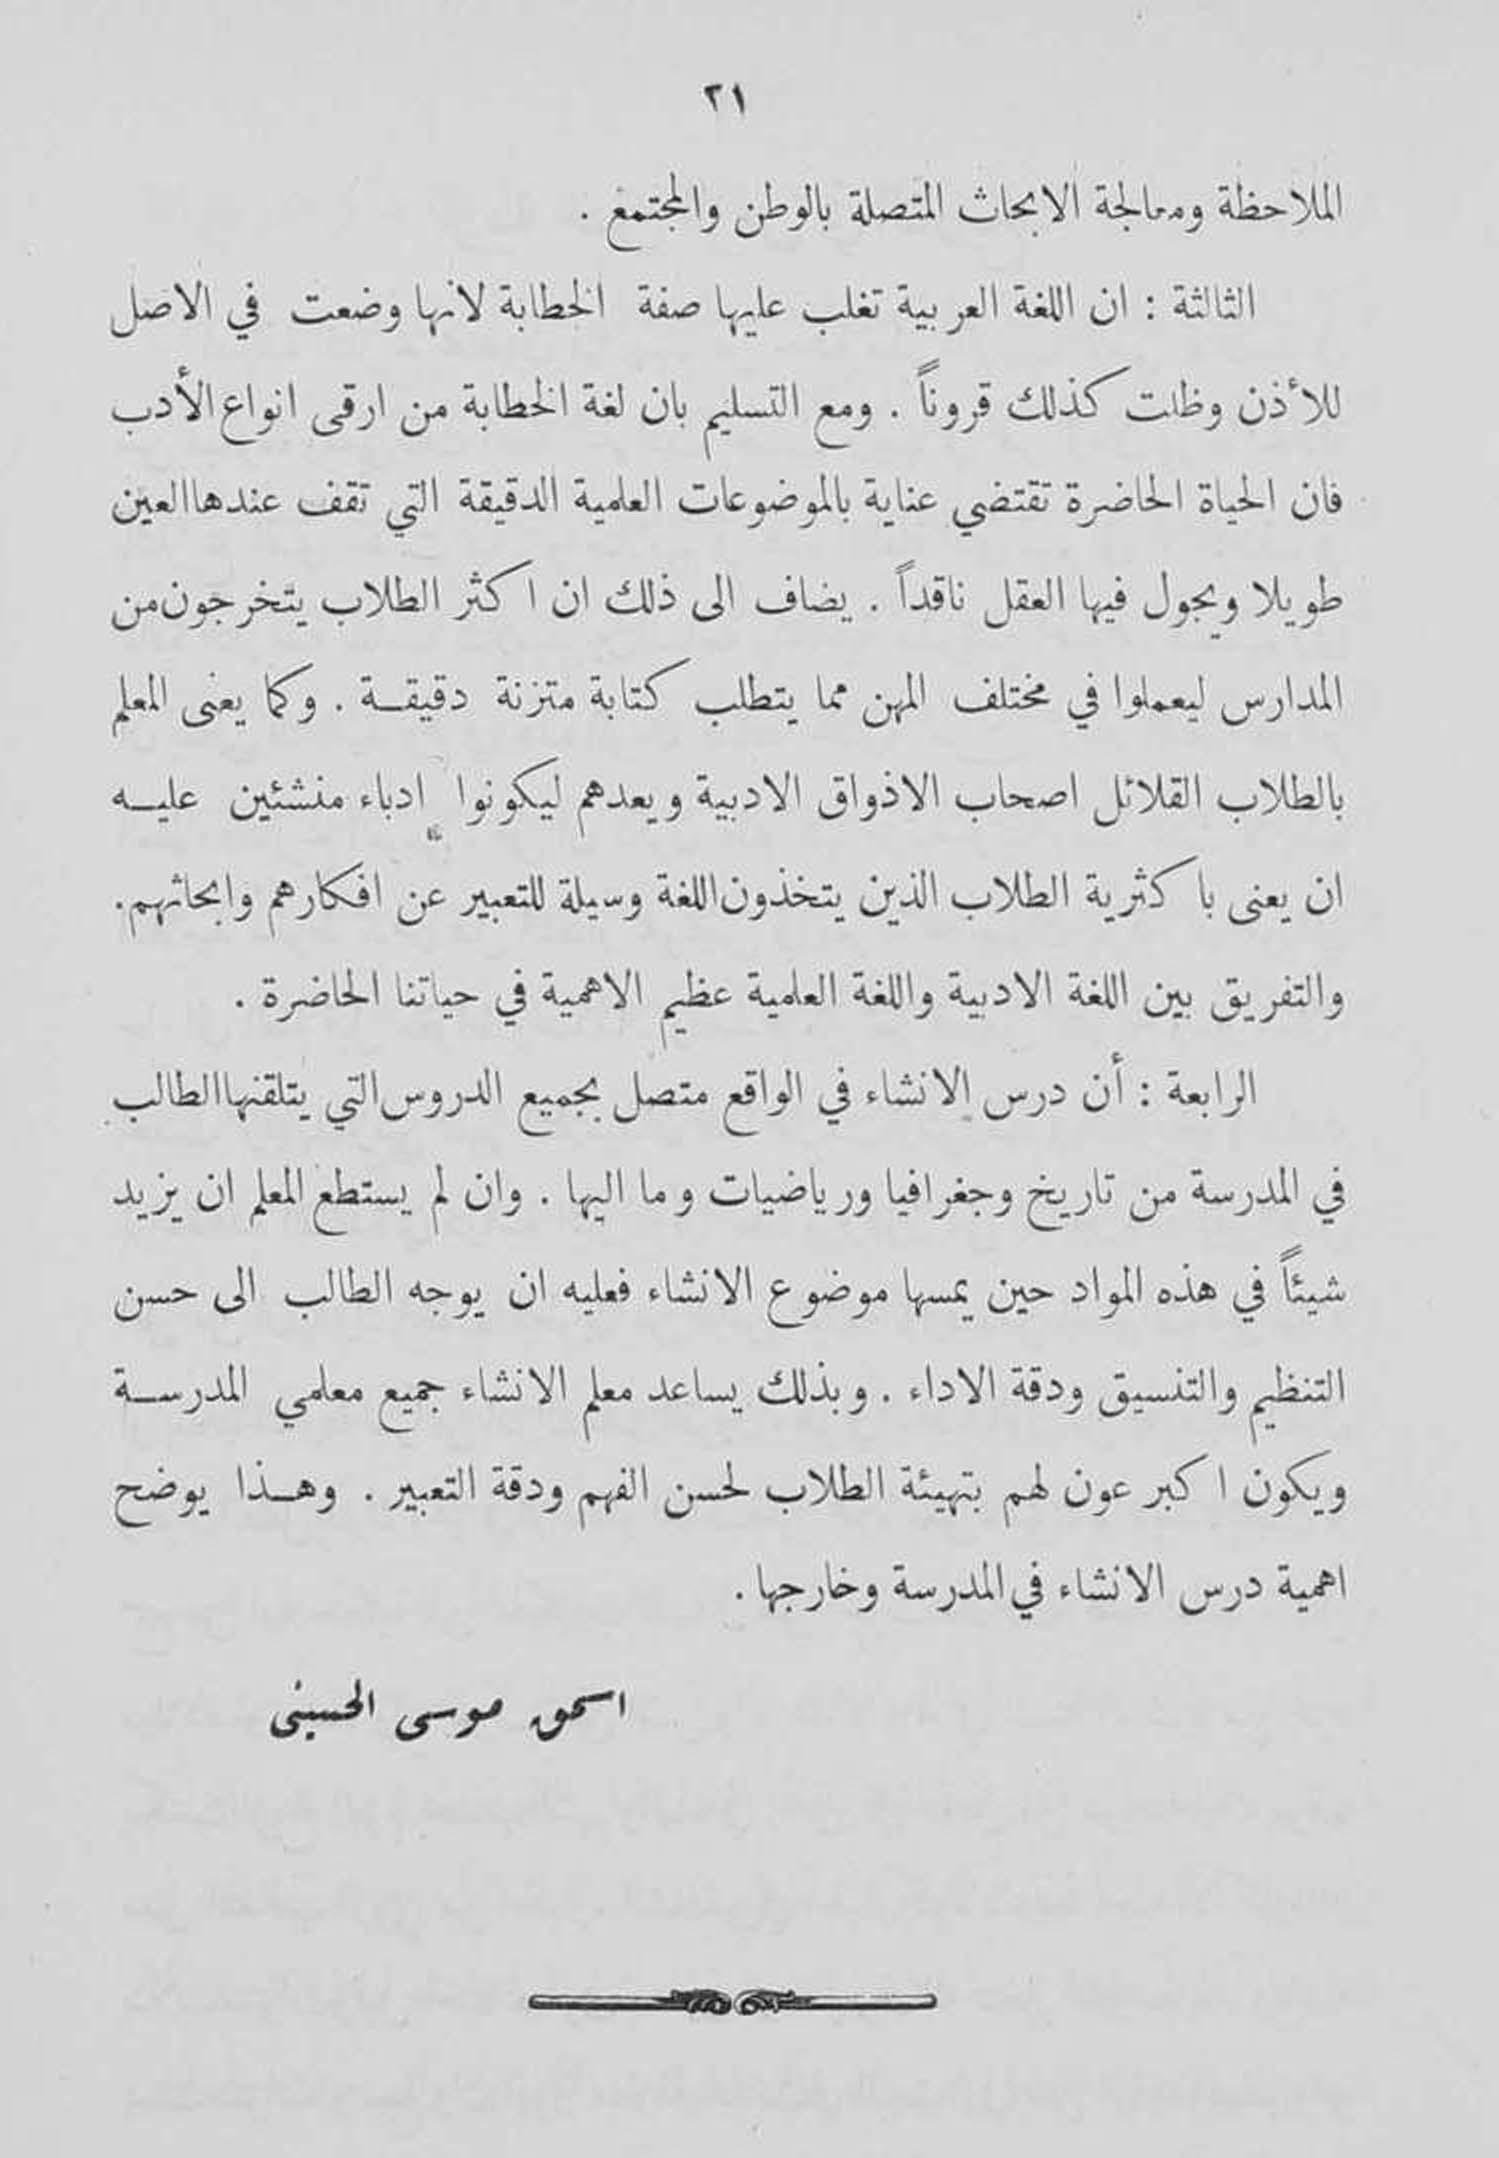 ٢١
الملاحظة ومعالجة الابحاث المتصلة بالوطن والمجتمع .
الثالثة : ان اللغة العربية تغلب عليها صفة الخطابة لانها وضعت في الاصل
للأذن وظلت كذلك قروناً . ومع التسليم بان لغة الخطابة من ارقى انواع الأدب
فان الحياة الحاضرة تقتضي عناية بالموضوعات العلمية الدقيقة التي تقف عندها العين
طويلا ويجول فيها العقل ناقداً . يضاف الى ذلك ان اكثر الطلاب يتخرجون من
المدارس ليعملوا في مختلف المهن مما يتطلب كتابة متزنة دقيقـة . وكما يعنى المعلم
بالطلاب القلائل اصحاب الاذواق الادبية ويعدهم ليكونوا ادباء منشئين عليـه
ان يعنى باكثرية الطلاب الذين يتخذون اللغة وسيلة للتعبير عن افكارهم وابحاثهم.
والتفريق بين اللغة الادبية واللغة العلمية عظيم الاهمية في حياتنا الحاضرة .
الرابعة : أن درس الانشاء في الواقع متصل بجميع الدروس التي يتلقنها الطالب
في المدرسة من تاريخ وجغرافيا ورياضيات وما اليها . وان لم يستطع المعلم ان يزيد
شيئاً في هذه المواد حين يمسها موضوع الانشاء فعليه ان يوجه الطالب الى حسن
التنظيم والتنسيق ودقة الاداء . وبذلك يساعد معلم الانشاء جميع معلمي المدرسـة
ويكون اكبر عون لهم بتهيئة الطلاب لحسن الفهم ودقة التعبير . وهـذا يوضح
اهمية درس الانشاء في المدرسة وخارجها .
اسحق موسى الحسيني